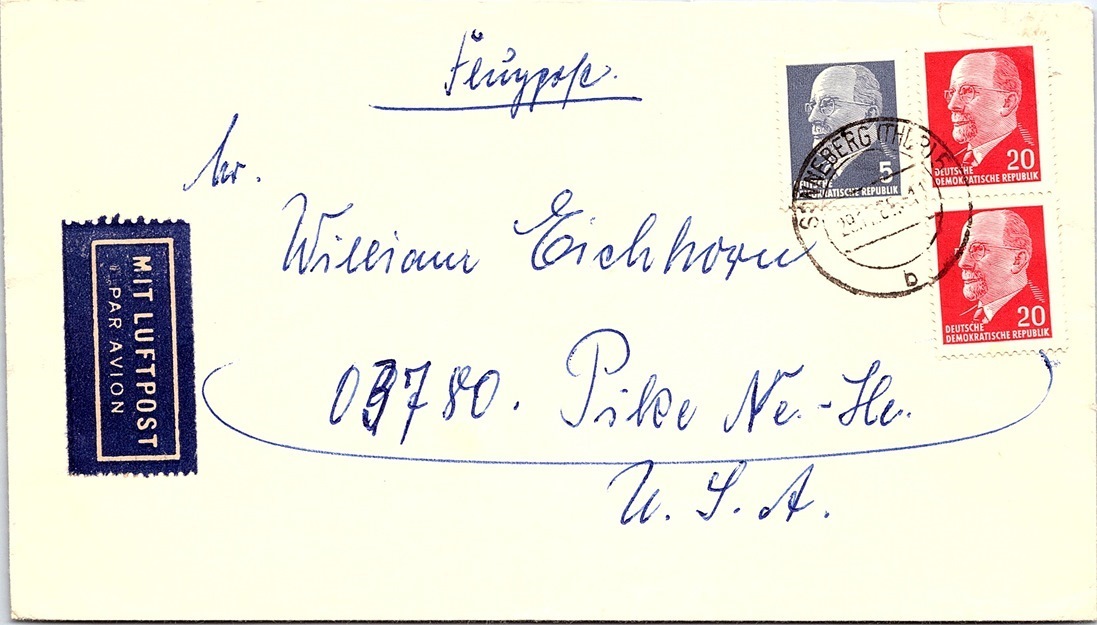 Flugpost.
Hr.
William Eichhorn
03780. Pike Ne.-He.
U. S. A.
MIT LUFTPOST
PAR AVION
5
DEUTSCHE
DEMOKRATISCHE REPUBLIK
20
DEUTSCHE
DEMOKRATISCHE REPUBLIK
20
DEUTSCHE
DEMOKRATISCHE REPUBLIK
SONNEBERG (THÜR) 1
b